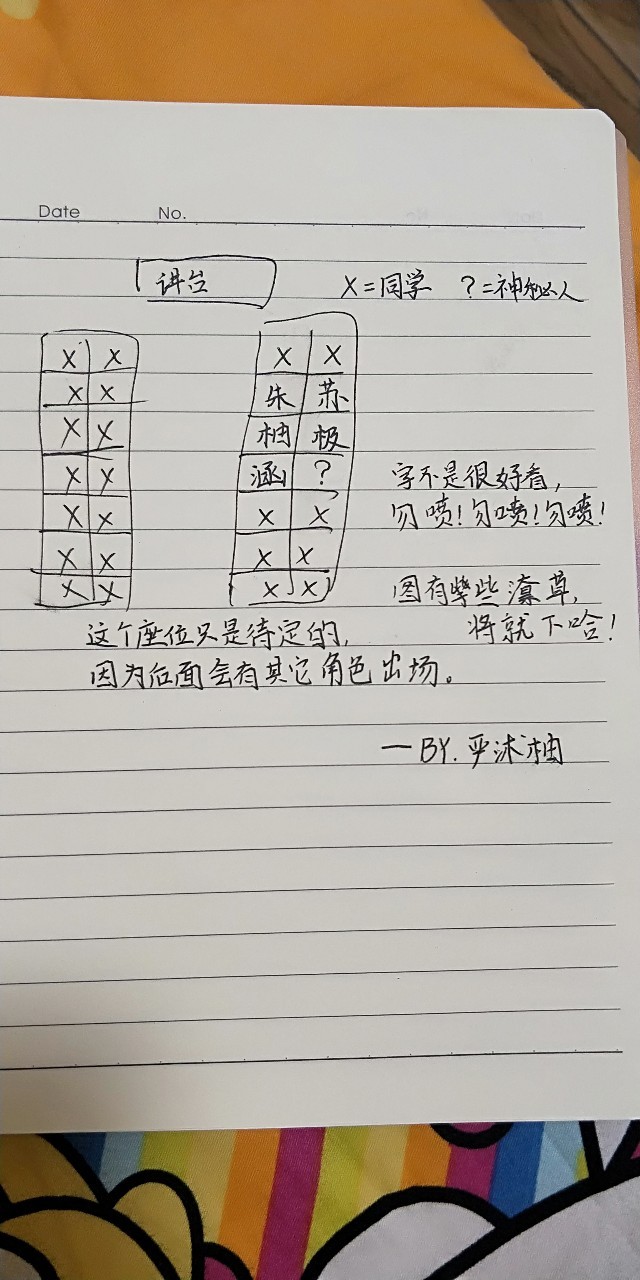 Date No.
讲台
X=同学 ?=神秘人
X X X X
X X 朱 苏
X X 柚 极
X X 涵 ?
字不是很好看,
X X X X
勿喷!勿喷!勿喷!
X X X X
X X X X
图有些潦草,
将就下哈!
这个座位只是待定的,
因为后面会有其它角色出场。
—BY.严沭柚